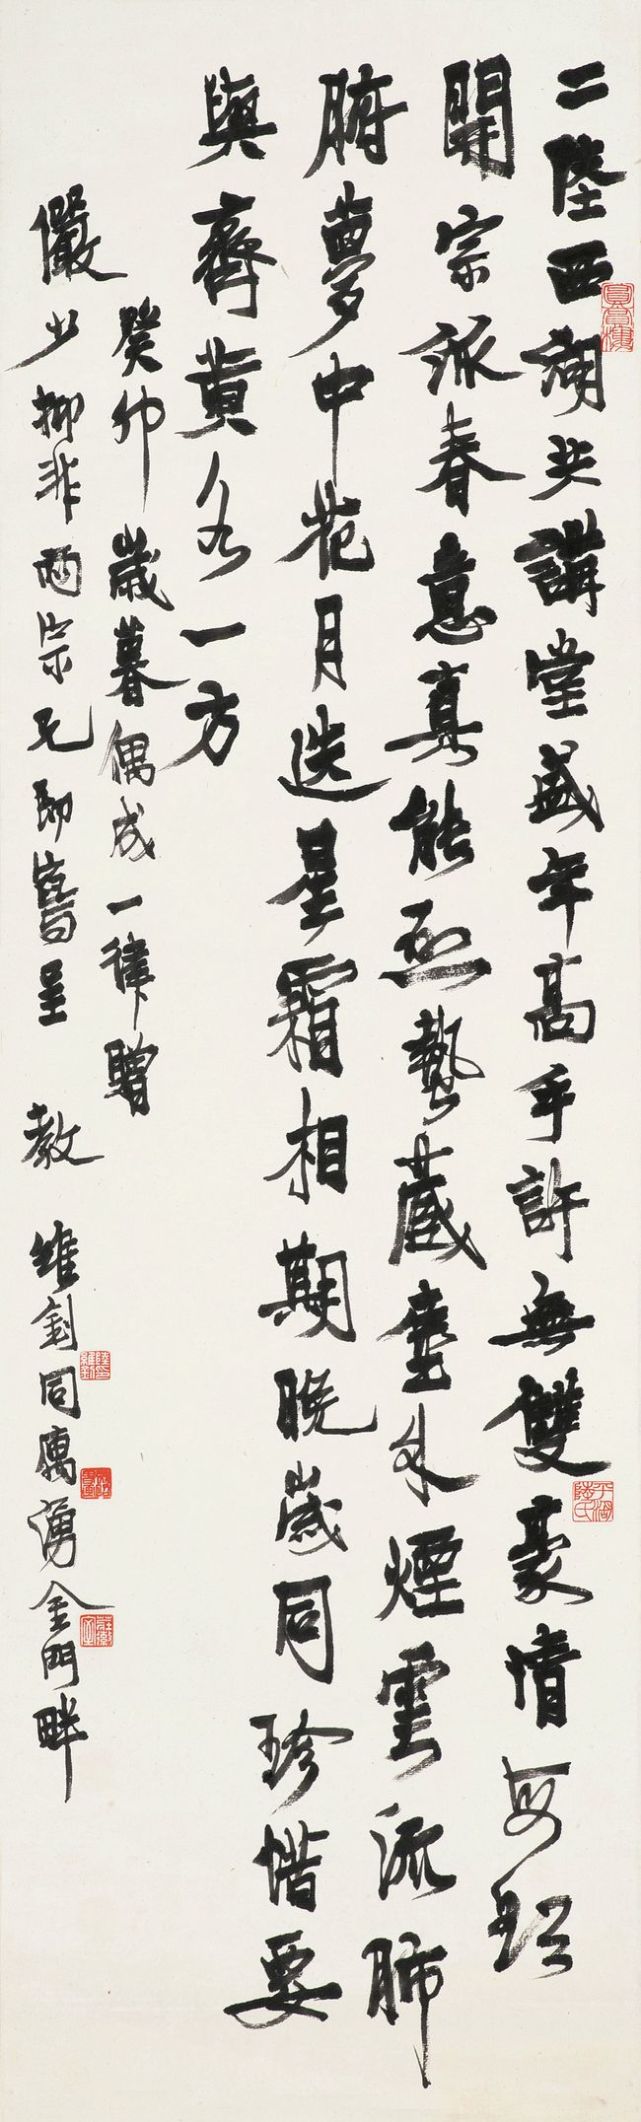 二陸西湖共講堂盛年高手許無雙豪情每
開宗派春意真能蟄藏塵外煙雲流肺
腑夢中花月迭星霜相期晚歲同珍惜要
與齊黃各一方
癸卯歲暮偶成一律贈
儼少抑非兩宗兄即書呈 教 維釗同寓湧金門畔
平湖陸氏